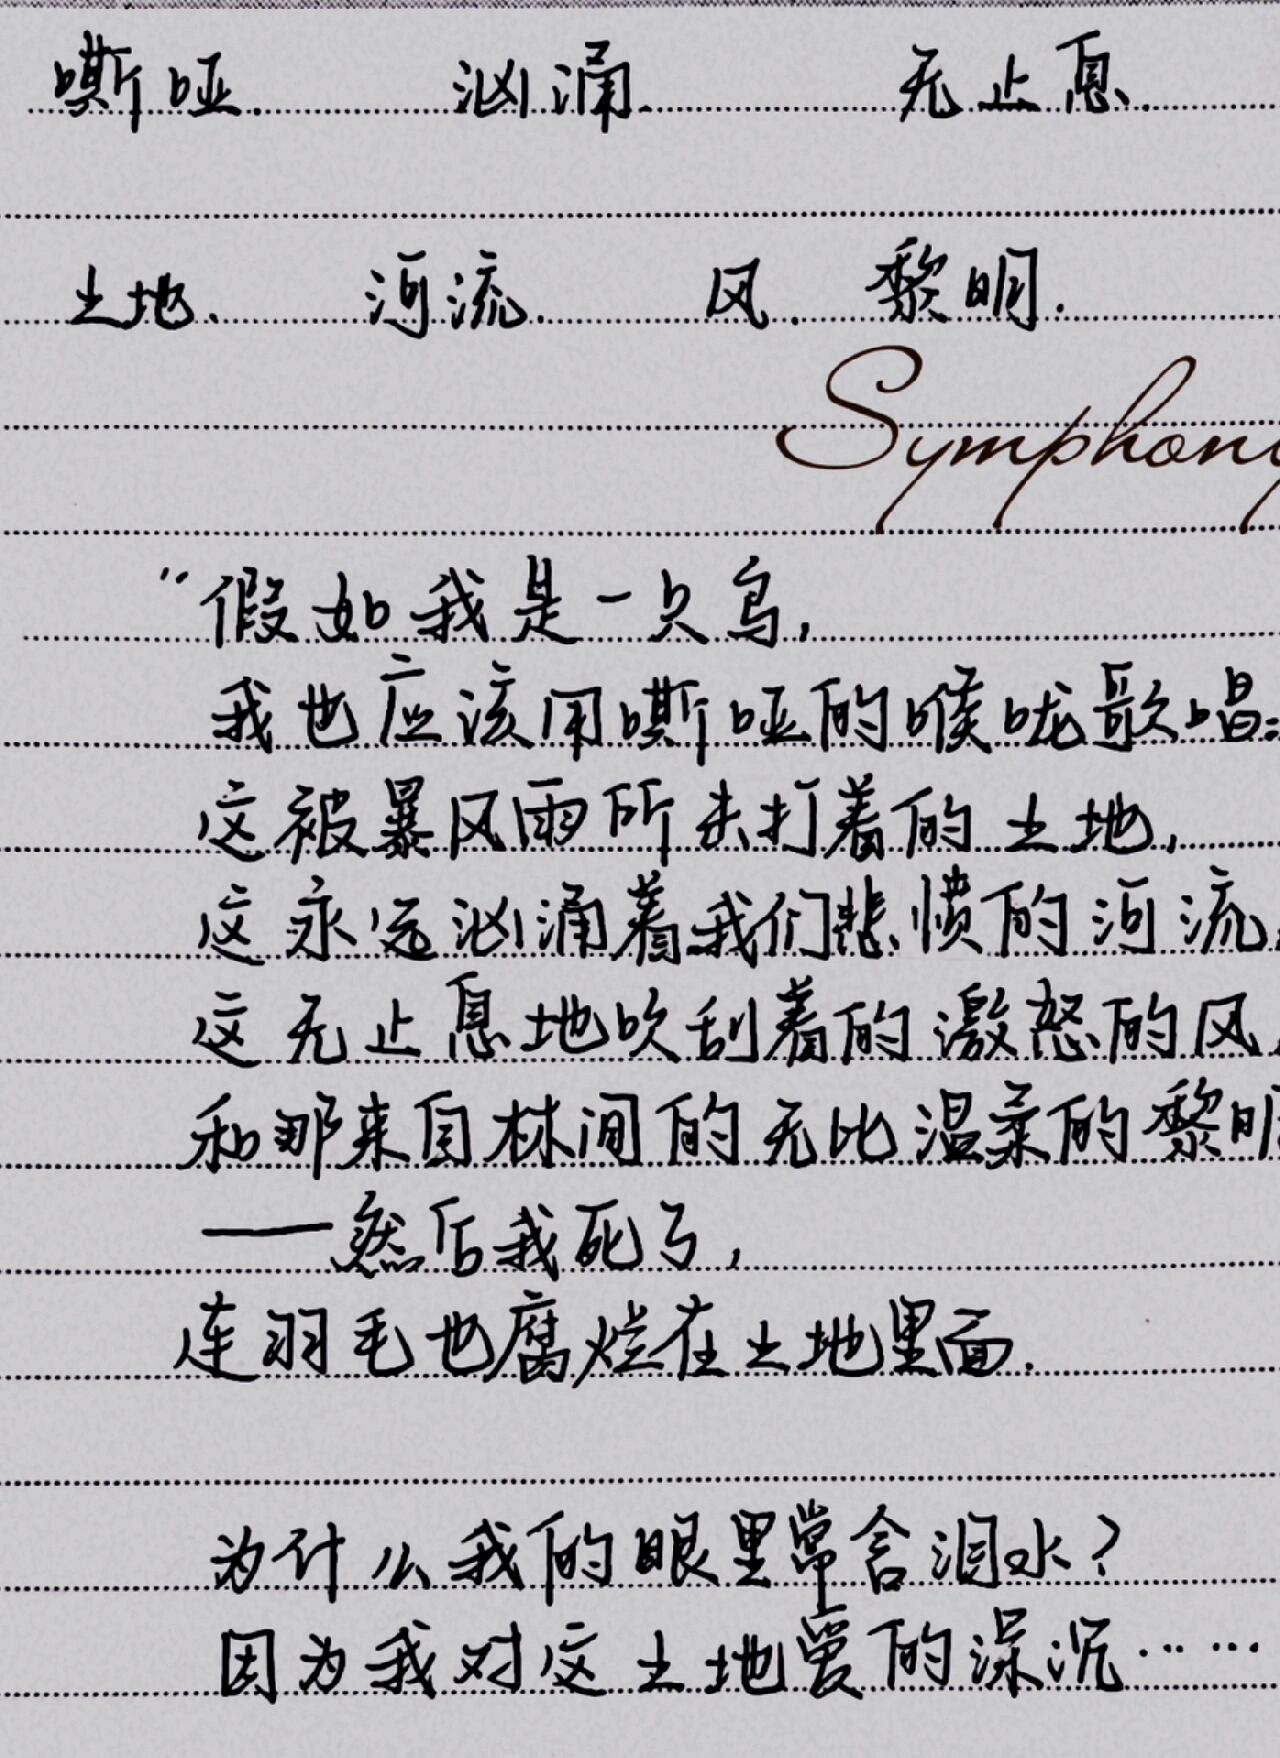 嘶哑. 汹涌. 无止息.
土地. 河流. 风. 黎明.
Symphony
“假如我是一只鸟,
我也应该用嘶哑的喉咙歌唱:
这被暴风雨所击打着的土地,
这永远汹涌着我们悲愤的河流,
这无止息地吹刮着的激怒的风,
和那来自林间的无比温柔的黎明
——然后我死了,
连羽毛也腐烂在土地里面.
为什么我的眼里常含泪水?
因为我对这土地爱的深沉……